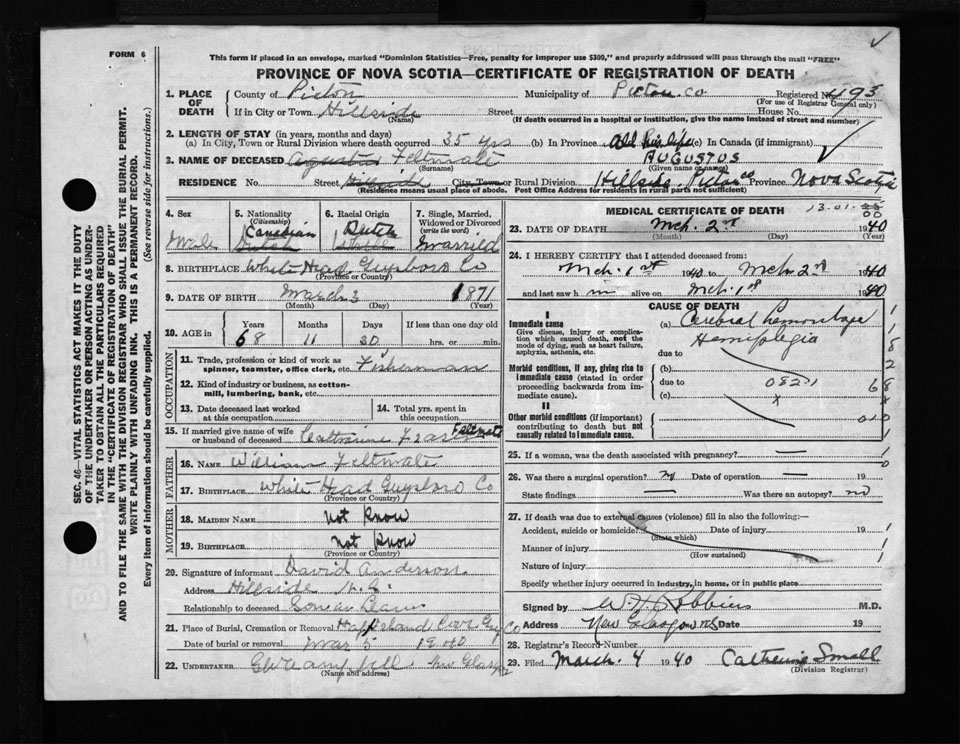 FORM 6
This form if placed in an envelope, marked "Dominion Statistics—Free, penalty for improper use $300," and properly addressed will pass through the mail "FREE"
PROVINCE OF NOVA SCOTIA—CERTIFICATE OF REGISTRATION OF DEATH
1. PLACE OF DEATH County of Pictou Municipality of Pictou Co Registered No. 493
(For use of Registrar General only)
If in City or Town Hillside (Name) Street House No.
(If death occurred in a hospital or institution, give the name instead of street and number)
2. LENGTH OF STAY (in years, months and days)
(a) In City, Town or Rural Division where death occurred 35 yrs (b) In Province All his life (c) In Canada (if immigrant)
3. NAME OF DECEASED Augustus Feltmate AUGUSTUS
(Surname) (Given name or names)
RESIDENCE No. Street Hillside City, Town or Rural Division Hillside, Pictou Co Province Nova Scotia
(Residence means usual place of abode. Post Office Address for residents in rural parts not sufficient)
4. Sex Male
5. Nationality (Citizenship) Canadian Dutch
6. Racial Origin Dutch
7. Single, Married, Widowed or Divorced (write the word) Married
8. BIRTHPLACE White Head Guysboro Co
(Province or Country)
9. DATE OF BIRTH March 3 1871
(Month) (Day) (Year)
10. AGE in Years Months Days If less than one day old
68 11 30 hrs. or min.
OCCUPATION
11. Trade, profession or kind of work as spinner, teamster, office clerk, etc. Fisherman
12. Kind of industry or business, as cotton-mill, lumbering, bank, etc.
13. Date deceased last worked at this occupation
14. Total yrs. spent in this occupation
15. If married give name of wife or husband of deceased Catharine Feltmate
FATHER
16. NAME William Feltmate
17. BIRTHPLACE White Head Guysboro Co
(Province or Country)
MOTHER
18. MAIDEN NAME Not Know
19. BIRTHPLACE Not Know
(Province or Country)
20. Signature of informant David Anderson
Address Hillside N.S.
Relationship to deceased Son in Law
21. Place of Burial, Cremation or Removal Guy Co
Date of burial or removal Mar 5 1940
22. UNDERTAKER New Glasgow
(Name and address)
MEDICAL CERTIFICATE OF DEATH 13.01
00
23. DATE OF DEATH Mch. 2nd 1940
(Month) (Day) (Year)
24. I HEREBY CERTIFY that I attended deceased from:
Mch. 1st 1940 to Mch. 2nd 1940
and last saw him alive on Mch. 1st 1940
CAUSE OF DEATH
I
Immediate cause
Give disease, injury or complication which caused death, not the mode of dying, such as heart failure, asphyxia, asthenia, etc.
(a) Cerebral Hemorrhage
Hemiplegia
due to
Morbid conditions, if any, giving rise to immediate cause (stated in order proceeding backwards from immediate cause).
(b)
due to 0821
(c) x
II
Other morbid conditions (if important) contributing to death but not causally related to immediate cause.
1
1
8
2
68
x
010
1
25. If a woman, was the death associated with pregnancy? —
26. Was there a surgical operation? Date of operation —
State findings — Was there an autopsy? no
27. If death was due to external causes (violence) fill in also the following:—
Accident, suicide or homicide? Date of injury 19
(State which)
Manner of injury
(How sustained)
Nature of injury
Specify whether injury occurred in industry, in home, or in public place
Signed by W H Robbins M.D.
Address New Glasgow NS Date 19
28. Registrar's Record Number
29. Filed March. 4 1940 Catherine Small
(Division Registrar)
SEC. 46—VITAL STATISTICS ACT MAKES IT THE DUTY
OF THE UNDERTAKER OR PERSON ACTING AS UNDER-
TAKER TO OBTAIN ALL THE PARTICULARS REQUIRED
IN THE "CERTIFICATE OF REGISTRATION OF DEATH"
AND TO FILE THE SAME WITH THE DIVISION REGISTRAR WHO SHALL ISSUE THE BURIAL PERMIT.
WRITE PLAINLY WITH UNFADING INK. THIS IS A PERMANENT RECORD.
Every item of information should be carefully supplied. (See reverse side for instructions.)